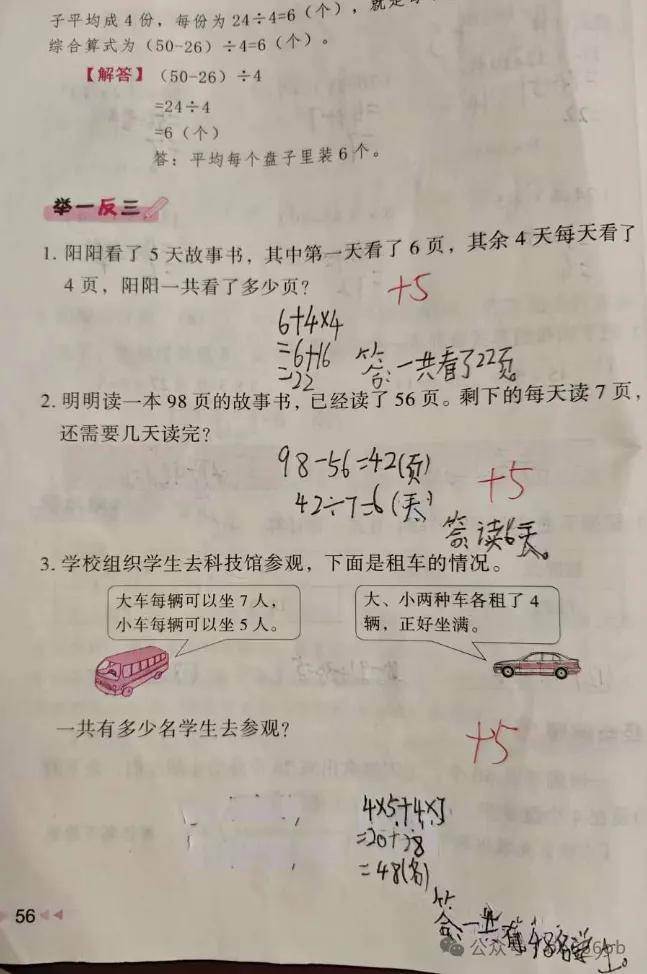 子平均成4份，每份为24÷4=6（个），就是
综合算式为（50-26）÷4=6（个）。
【解答】（50-26）÷4
=24÷4
=6（个）
答：平均每个盘子里装6个。
举一反三
1. 阳阳看了5天故事书，其中第一天看了6页，其余4天每天看了
4页，阳阳一共看了多少页？
+5
6+4×4
=6+16
=22
答：一共看了22页。
2. 明明读一本98页的故事书，已经读了56页。剩下的每天读7页，
还需要几天读完？
98-56=42(页)
42÷7=6(天)
+5
答：读6天。
3. 学校组织学生去科技馆参观，下面是租车的情况。
大车每辆可以坐7人，
小车每辆可以坐5人。
大、小两种车各租了4
辆，正好坐满。
一共有多少名学生去参观？
+5
4×5+4×7
=20+28
=48(名)
答：一共有48名学生。
56
公众号